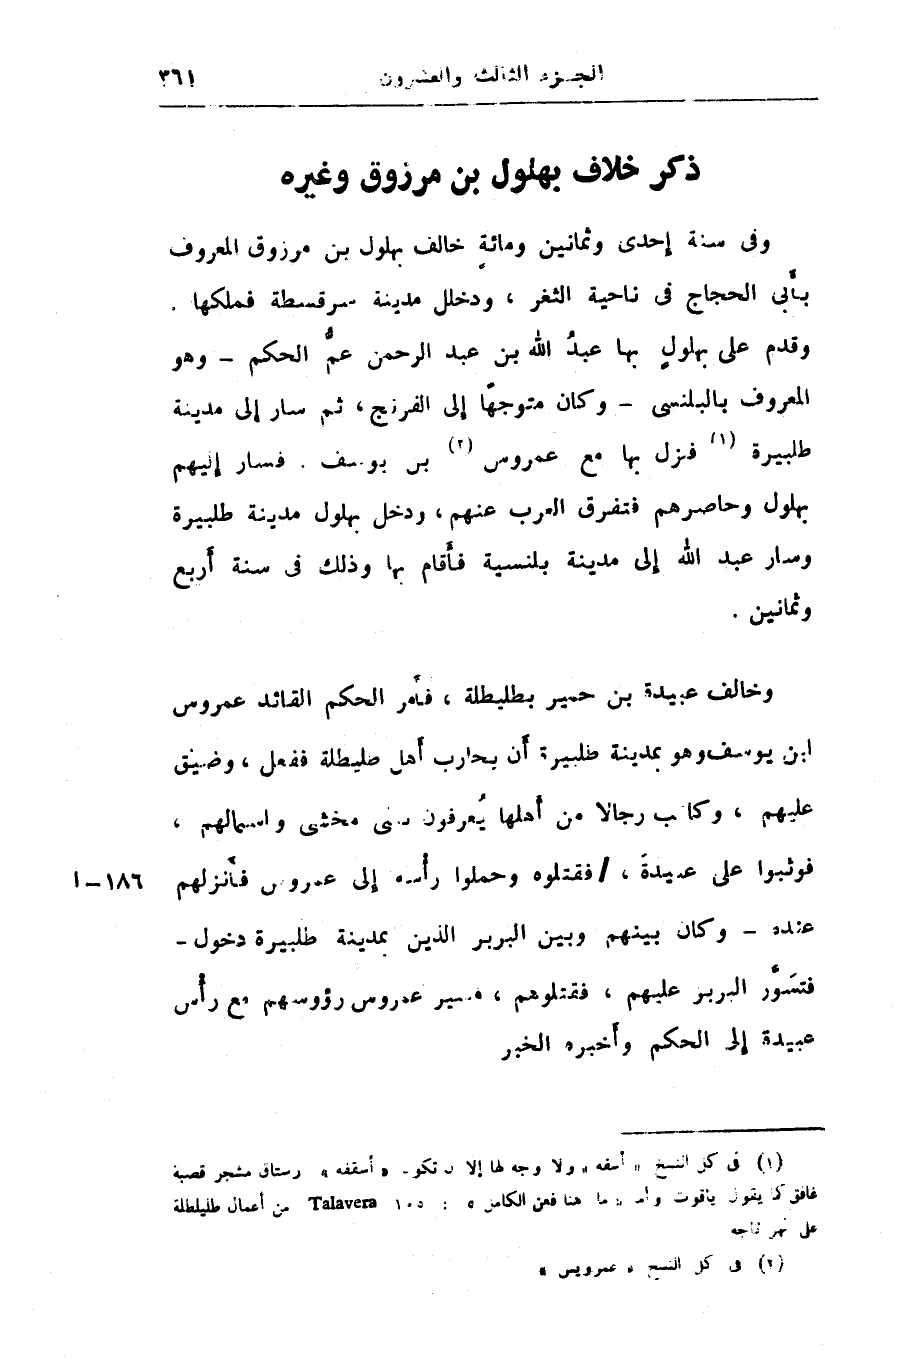 الجزء الثالث والعشرون ٣٦١
ذكر خلاف بهلول بن مرزوق وغيره
وفى سنة إحدى وثمانين ومائةٍ خالف بهلول بن مرزوق المعروف
بأَبى الحجاج فى ناحية الثغر ، ودخلل مدينة سرقسطة فملكها .
وقدم على بهلولٍ بها عبدُ الله بن عبد الرحمن عمُّ الحكم – وهو
المعروف بالبلنسى – وكان متوجهًا إلى الفرنج ، ثم سار إلى مدينة
طلبيرة (١) فنزل بها مع عمروس (٢) بن يوسف . فسار إليهم
بهلول وحاصرهم فتفرق العرب عنهم ، ودخل بهلول مدينة طلبيرة
وسار عبد الله إلى مدينة بلنسية فأَقام بها وذلك فى سنة أَربع
وثمانين .
وخالف عبيدة بن حمير بطليطلة ، فأَمر الحكم القائد عمروس
ابن يوسف وهو بمدينة طلبيرة أَن يحارب أَهل طليطلة ففعل ، وضيق
عليهم ، وكاتب رجالا من أَهلها يُعرفون ببنى مخشى واستمالهم ،
فوثبوا على عبيدةَ ، / فقتلوه وحملوا رأْسه إلى عمروس فأَنزلهم ١٨٦ – ا
عنده – وكان بينهم وبين البربر الذين بمدينة طلبيرة دخول –
فتسَوَّر البربر عليهم ، فقتلوهم ، فسير عمروس رؤوسهم مع رأْس
عبيدة إلى الحكم وأَخبره الخبر
(١) فى كل النسخ « أسفه » ولا وجه لها إلا أن تكون « أسقفه » رستاق مشجر قصبة
غافق كما يقول ياقوت وأما ما هنا فعن الكامل ٥ : ١٠٥ Talavera من أعمال طليطلة
على نهر تاجه
(٢) فى كل النسخ « عمرويس »